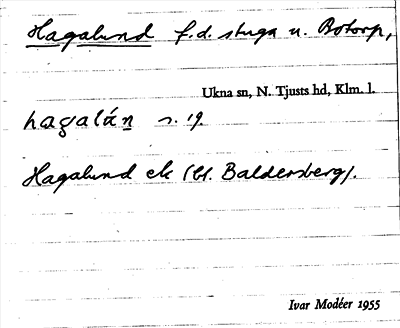 Hagalund f.d. stuga u. Botorp,
Ukna sn, N. Tjusts hd, Klm. l.
hagaláṉ s. 19.
Hagalund ek (bl. Baldersberg).
Ivar Modéer 1955